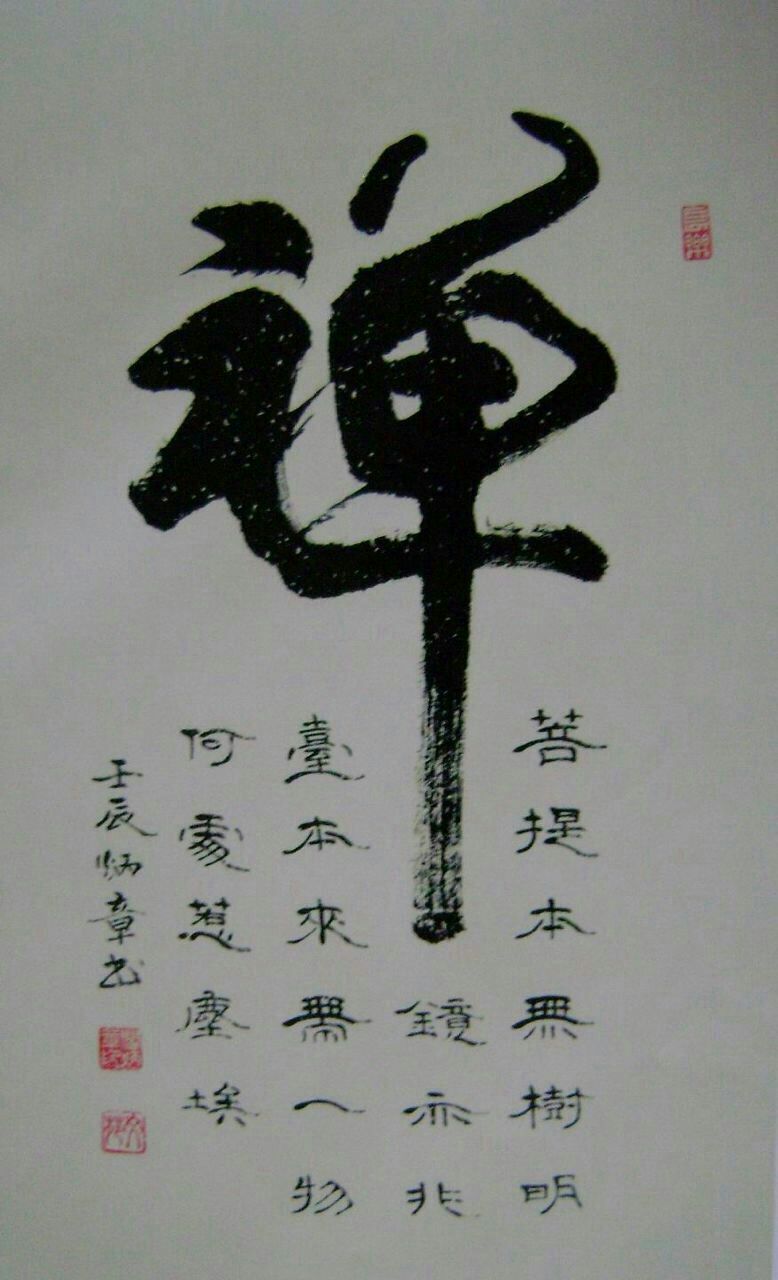 禪
菩提本無樹明
鏡亦非
臺本來無一物
何處惹塵埃
壬辰炳章書